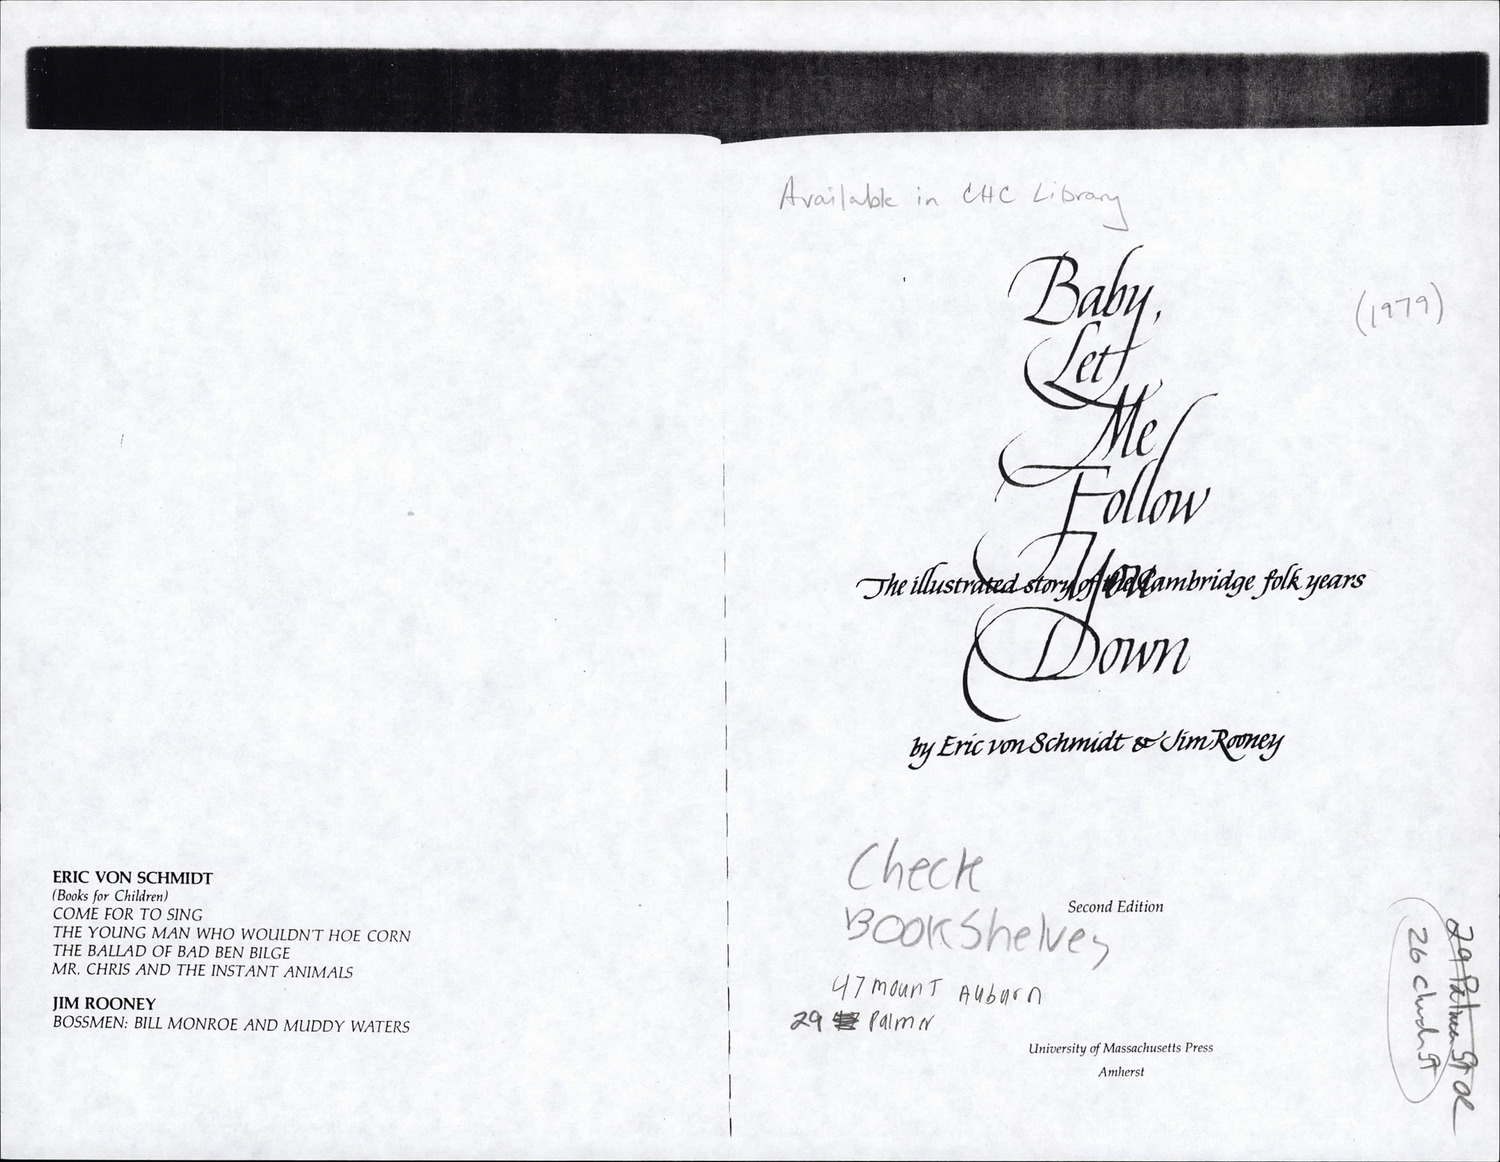 ERIC VON SCHMIDT
(Books for Children)
COME FOR TO SING
THE YOUNG MAN WHO WOULDN'T HOE CORN
THE BALLAD OF BAD BEN BILGE
MR. CHRIS AND THE INSTANT ANIMALS
JIM ROONEY
BOSSMEN: BILL MONROE AND MUDDY WATERS
Available in CHC Library
(1979)
Baby,
Let
Me
Follow
You
The illustrated story of the Cambridge folk years
Down
by Eric von Schmidt & Jim Rooney
Check
Book Shelves
Second Edition
47 mount Auburn
29 Palmer
University of Massachusetts Press
Amherst
29 Palmer St or
26 Church St